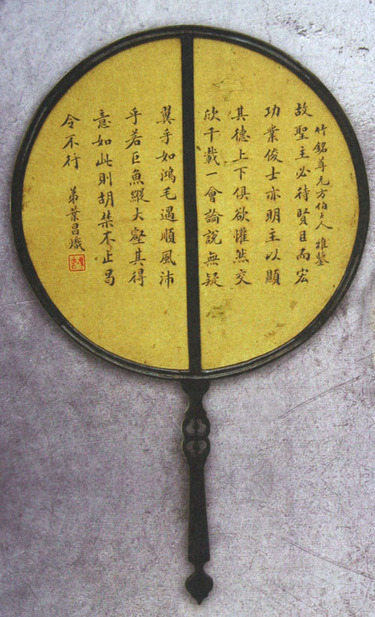 竹銘尊兄方伯大人雅鑒
故聖主必待賢臣而宏
功業俊士亦明主以顯
其德上下俱欲懽然交
欣千載一會論說無疑
翼乎如鴻毛遇順風沛
乎若巨魚縱大壑其得
意如此則胡禁不止曷
令不行 弟葉昌熾